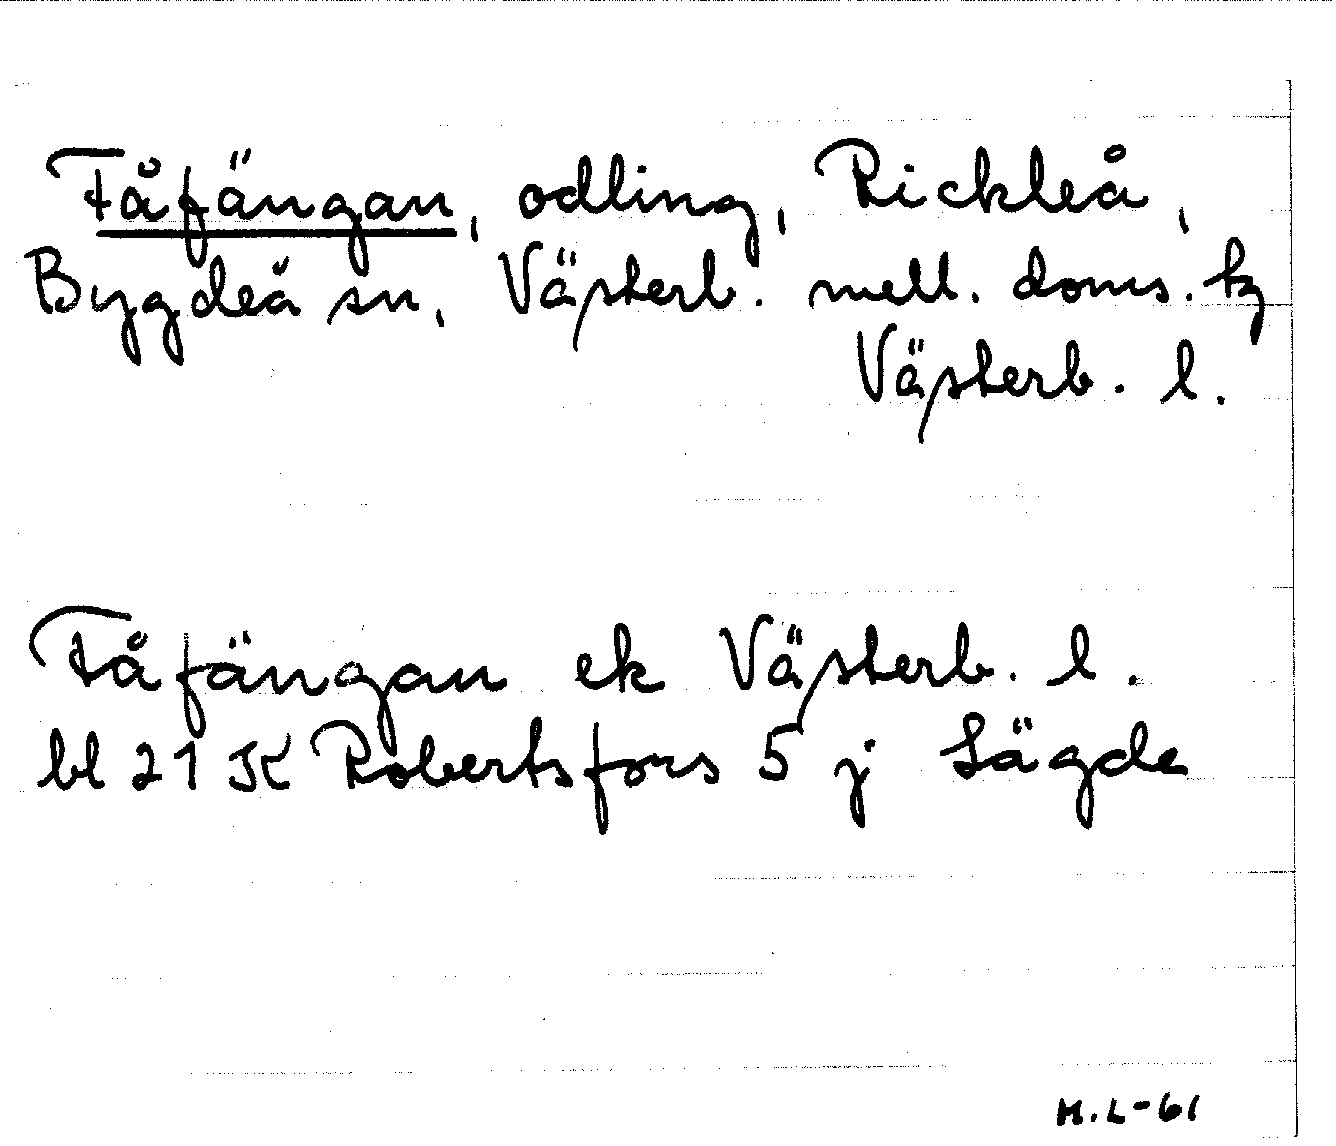 Fåfängan, odling, Rickleå,
Bygdeå sn, Västerb. mell. doms. hg
Västerb. l.
Fåfängan ek Västerb. l.
bl 21 K Robertsfors 5 j Sägde
H.L-61